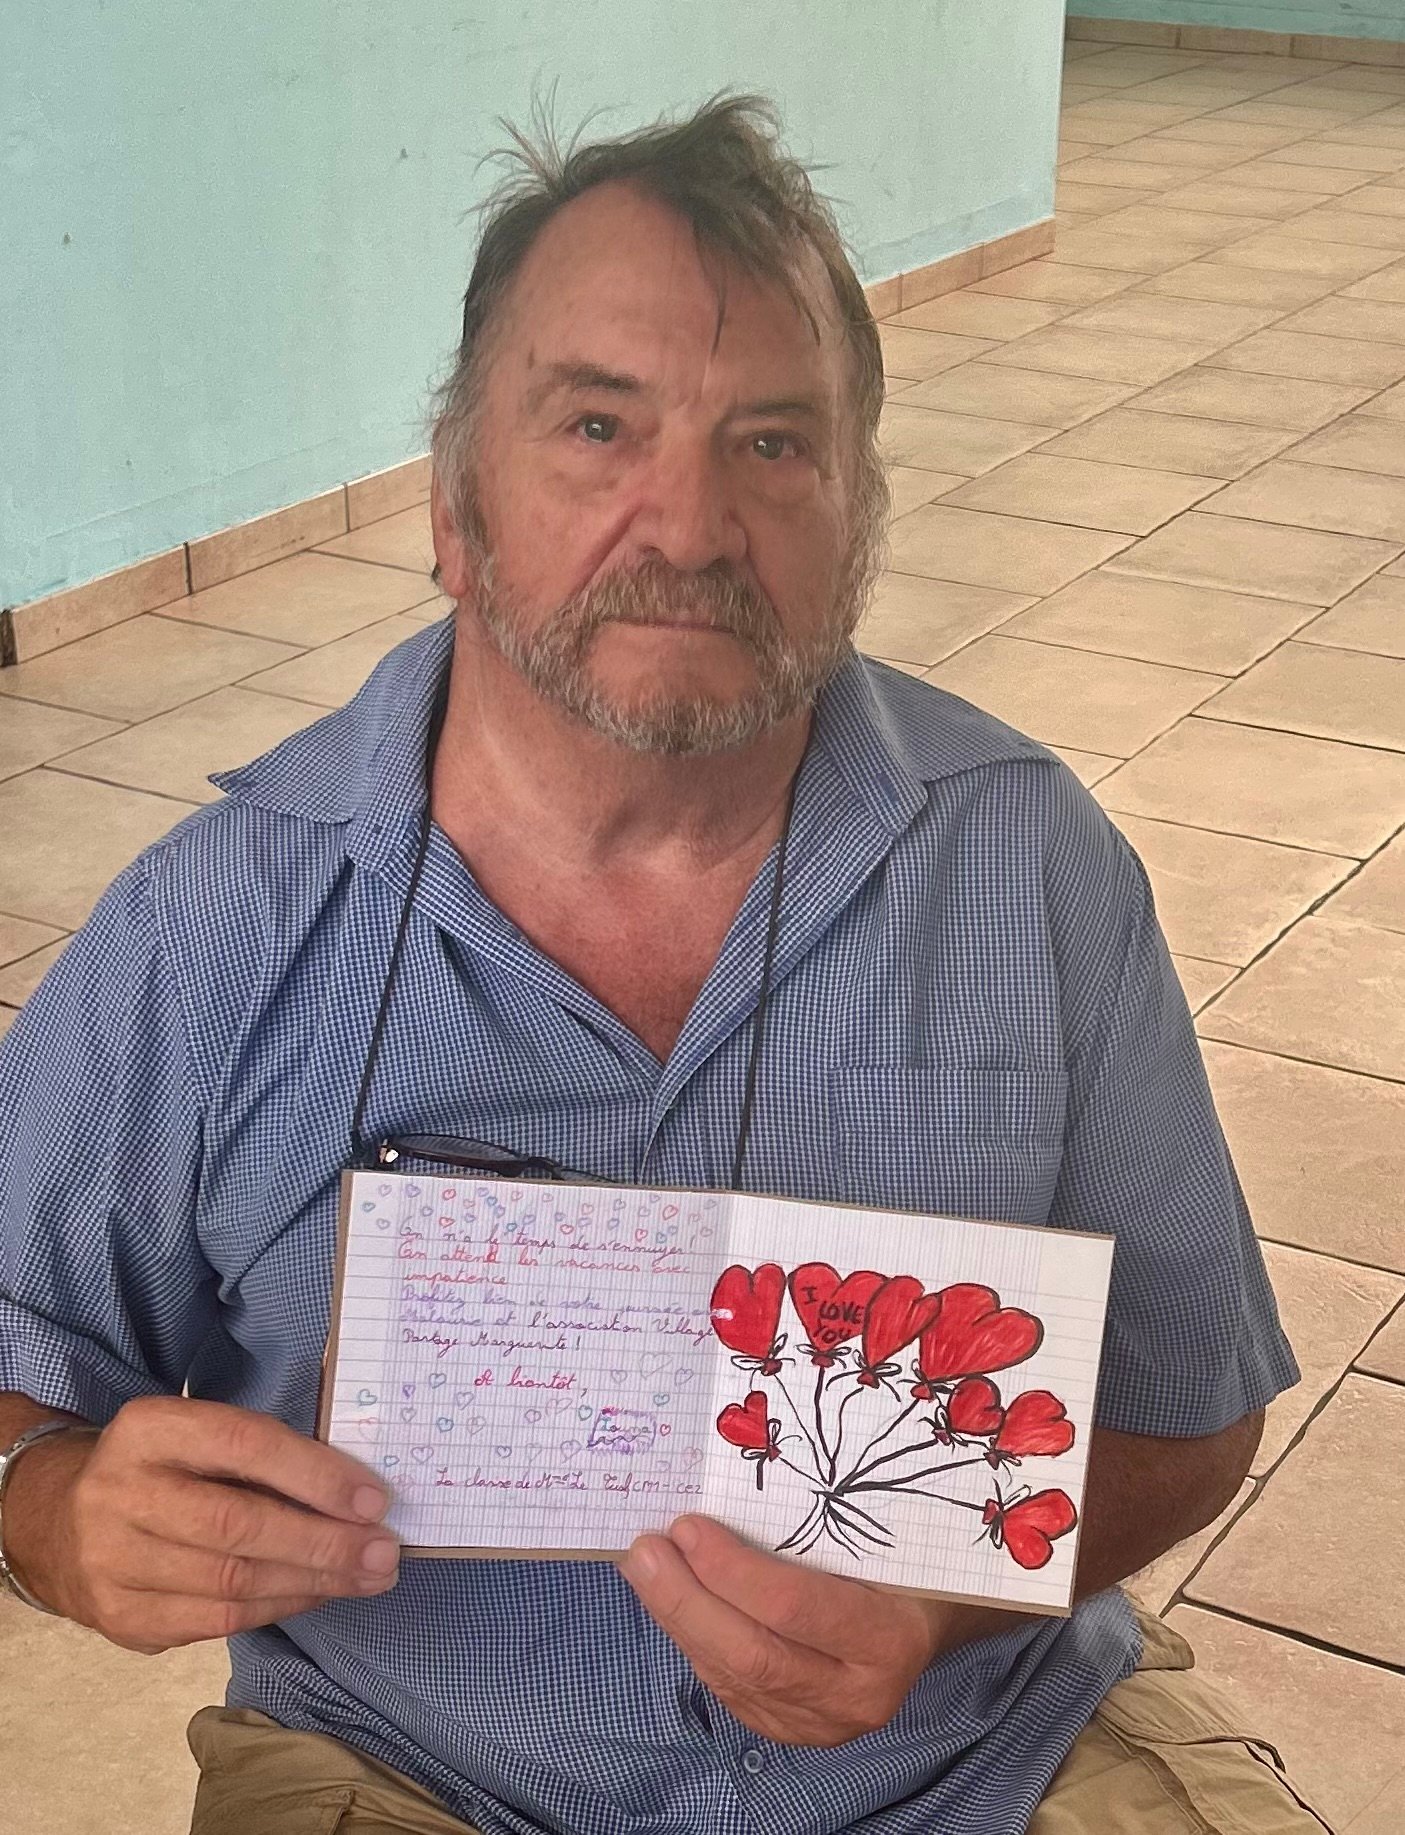 On n'a le temps de s'ennuyer!
On attend les vacances avec
impatience
Profitez bien de votre journée
et l'association Village
Partage Marguerite!
A bientôt,
La classe de Mme Le CM1-CE2
I
LOVE
YOU